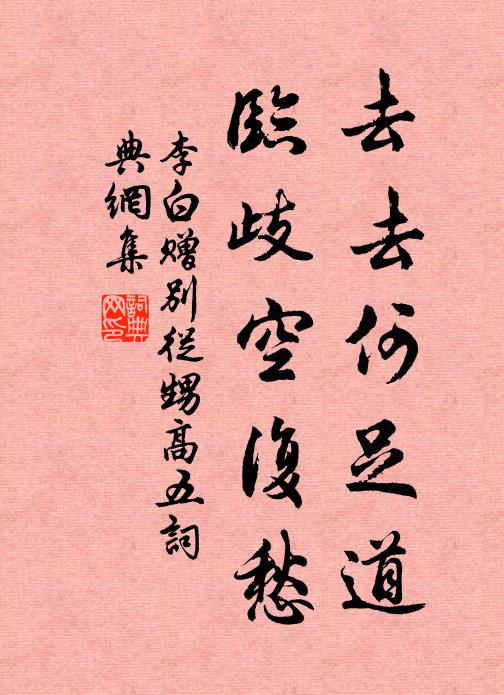 去去何足道
臨歧空復愁
李白贈別從甥高五詞
典網集
詞典
网印